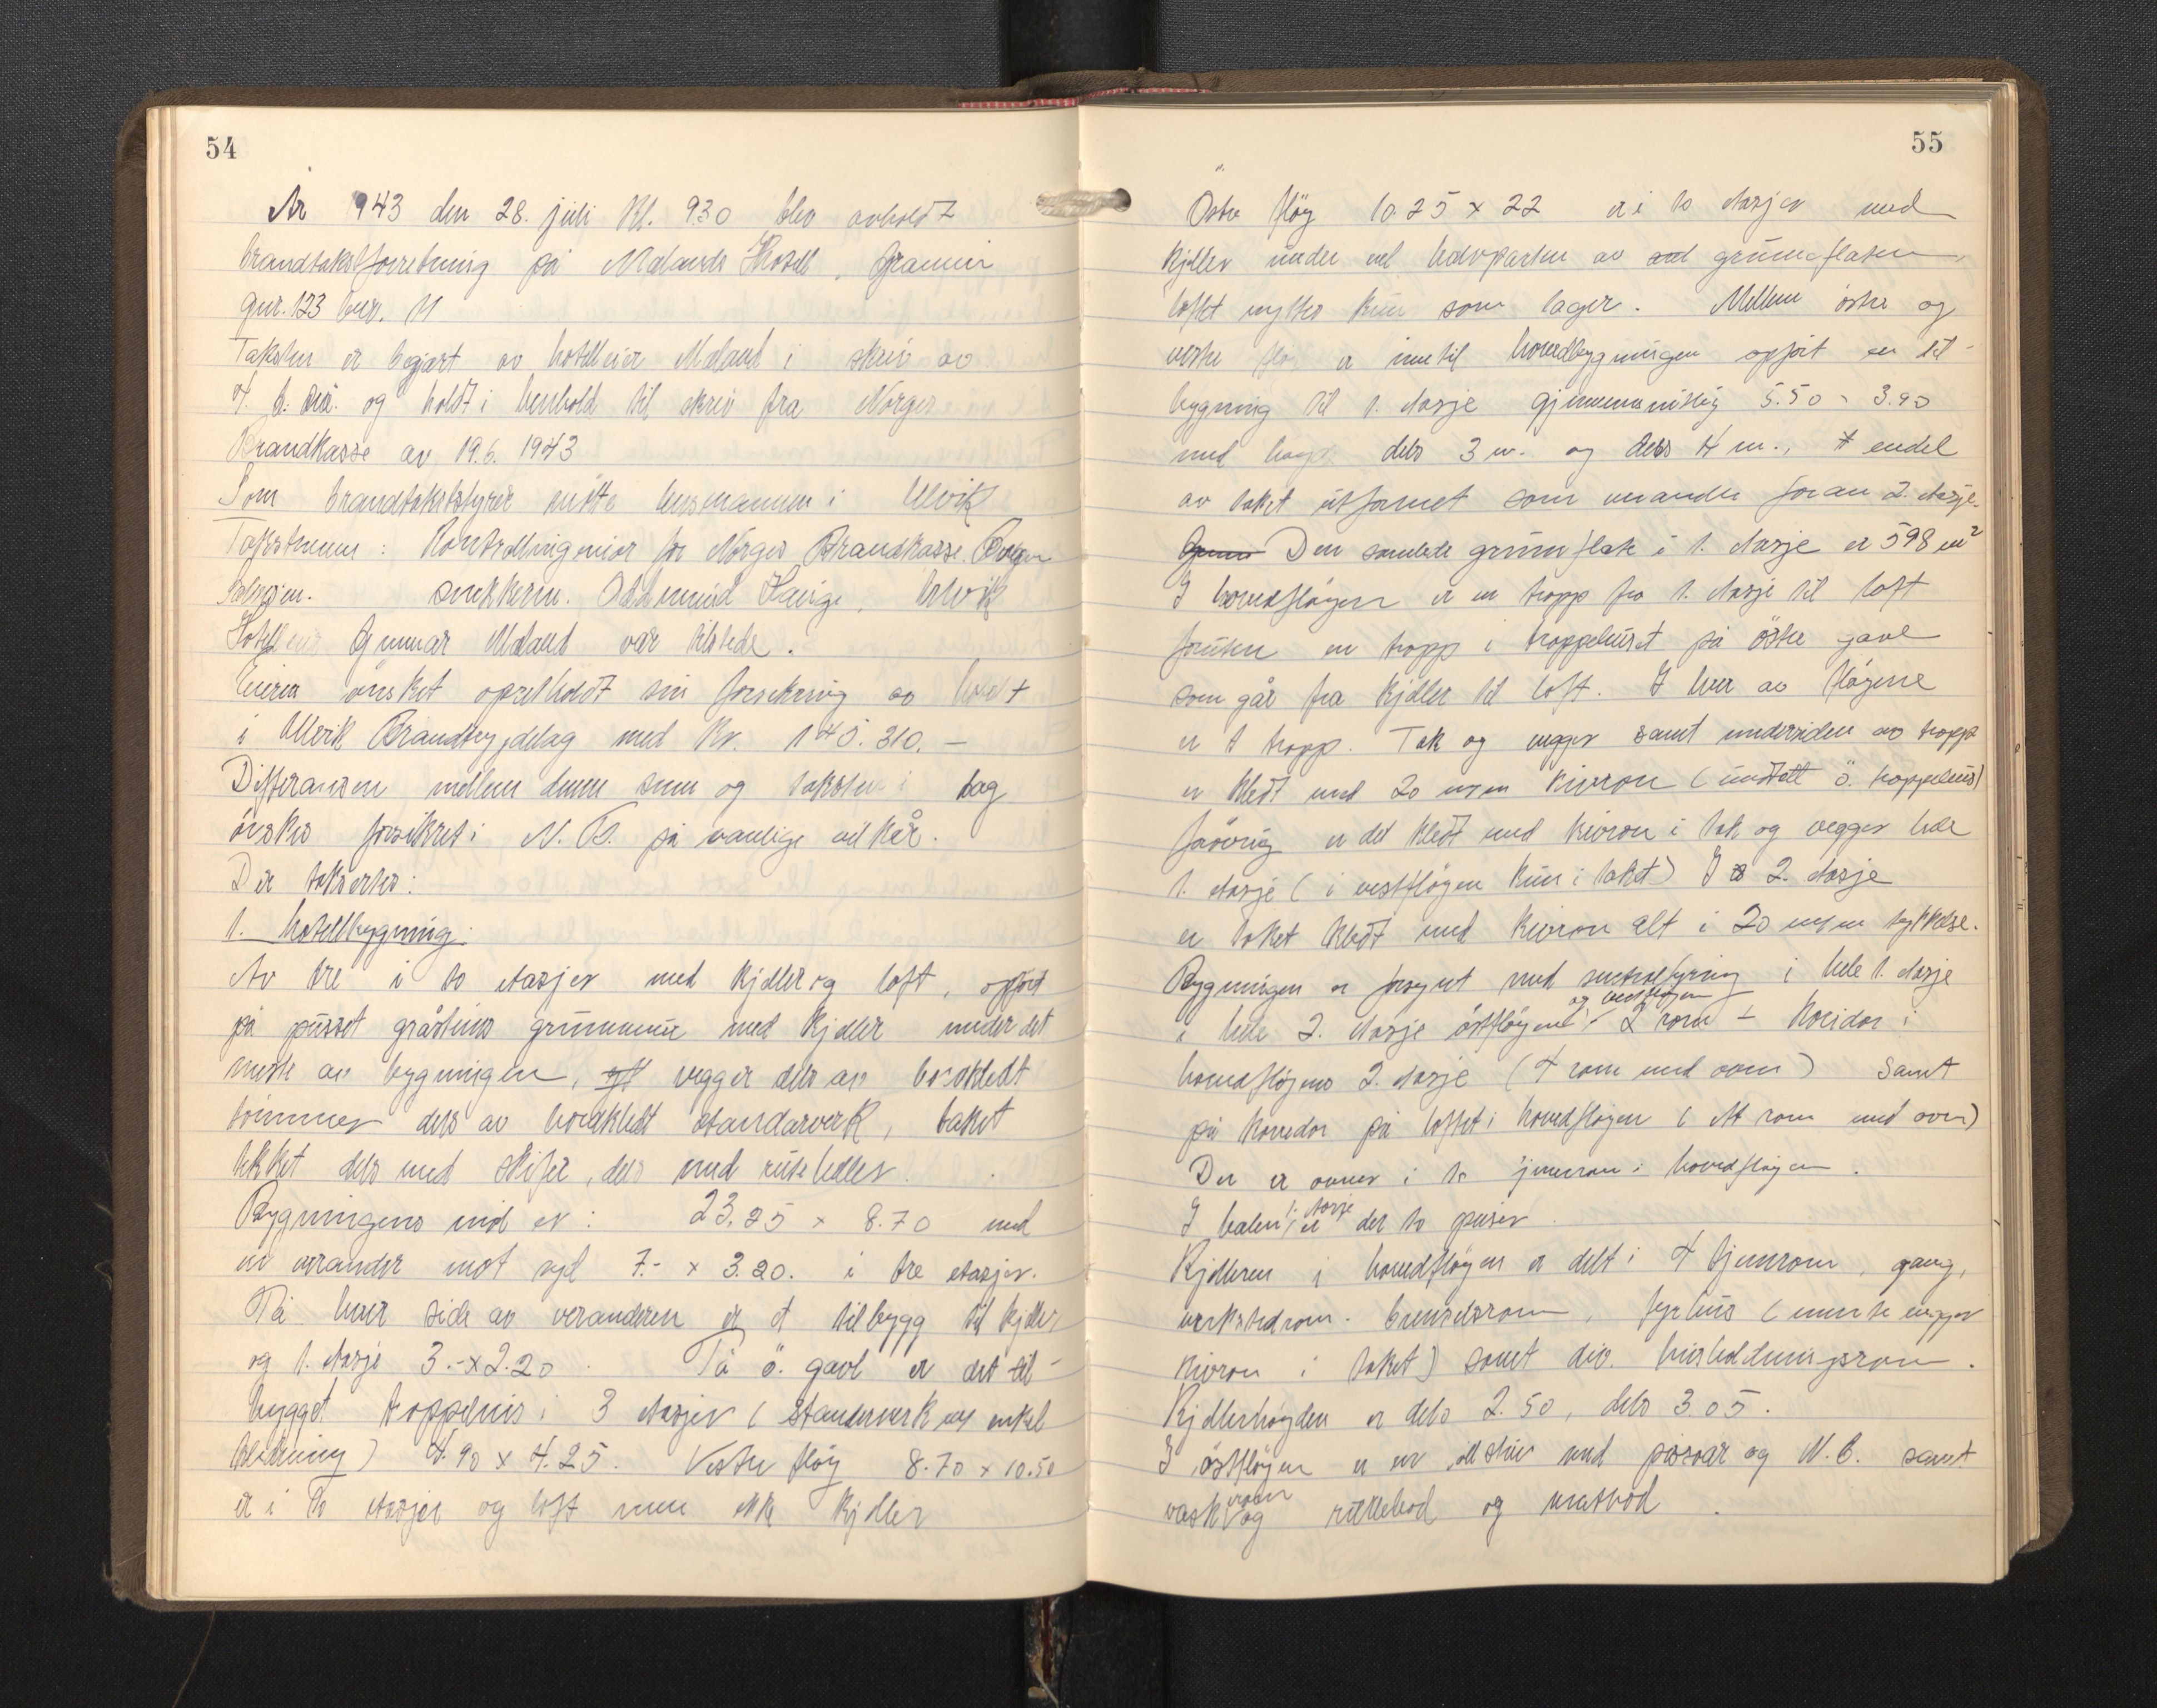 54
År 943 den 28. juli Kl. 930 blev avholdt
brandtakstforretning på Mælands Hotell, Granvin
gnr. 123 bnr. 11
Taksten er begjært av hotelleier Mæland i skriv av
og holdt i henhold til skriv fra Norges
Brandkasse av 19.6. 1943
Som brandtakstbestyrer møtte lensmannen i Ulvik
Takstmenn: Kontrollingeniør for Norges Brandkasse
snekkerm. Oddmund Ulvik
Hotelleier Gunnar Mæland var tilstede.
Eieren ønsket opretholdt sin forsikring av hotellet
i Ulvik Brandbygdelag med Kr. 145.310.—
Differansen mellem denne sum og taksten i dag
ønskes forsikret i N.B. på vanlige vilkår.
Der takseres:
1. Hotellbygning:
Av tre i to etasjer med kjeller og loft, opført
på pusset gråstens grunnmur med kjeller under det
meste av bygningen, vegger dels av bordkledt
tømmer dels av bordkledt standarverk, taket
tekket dels med skifer, dels med ruteheller.
Bygningens mål er: 23,25 x 8.70 med
en verander mot syd 7.- x 3.20. i tre etasjer.
På hver side av veranderen er et tilbygg til kjeller
og 1. etasje 3.- x 2.20. På ö. gavl er det til-
bygget trappehus i 3 etasjer (standerverk m/ enkel
kledning) 4.90 x 4.25. Vestre fløy 8.70 x 10.50
er i to etasjer og loft men ikke kjeller
55
Östre fløy 10.25 x 22 er i to etasjer med
kjeller under vel halvparten av grunnflaten,
loftet nyttes kun som lager. Mellem östre og
vestre fløy er inntil hovedbygningen opført en til-
bygning til 1. etasje gjennemsnitlig 5.50 x 3.90
med høgd dels 3 m. og dels 4 m., endel
av taket utformet som verander foran 2. etasje.
Den samlede grunnflate i 1. etasje er 598 m²
I hovedfløyen er en trapp fra 1. etasje til loft
foruten en trapp i trappehuset på östre gavl
som går fra kjeller til loft. I hver av fløyene
er 1 trapp. Tak og vegger samt undersiden av trapp
er kledt med 20 mm m kivron (unntatt ö. trappehus)
forøvrig er det kledt med kivron i tak og vegger hele
1. etasje (i vestfløyen kun i taket) I 2. etasje
er taket kledt med kivron alt i 20 mm m tykkelse.
Bygningen er forsynt med sentralfyring i hele 1. etasje
og vestfløyen
i hele 2. etasje östfløyen 2 rom + koridor i
hovedfløyens 2. etasje (4 rom med ovn) samt
på koredor på loftet i hovedfløyen (ett rom med ovn)
Der er ovner i to i hovedfløyen.
1. etasje
I halen er det to peiser.
Kjelleren i hovedfløyen er delt i 4 bjenrom, gang,
verkstedrom. brenselsrom, fyrhus (murte vegger
kivron i taket) samt div. husholdningsrom.
Kjellerhøyden er dels 2.50, dels 3.05.
I östfløyen er en med pissoar og W.C. samt
vaskerom og rullebod og matbod.